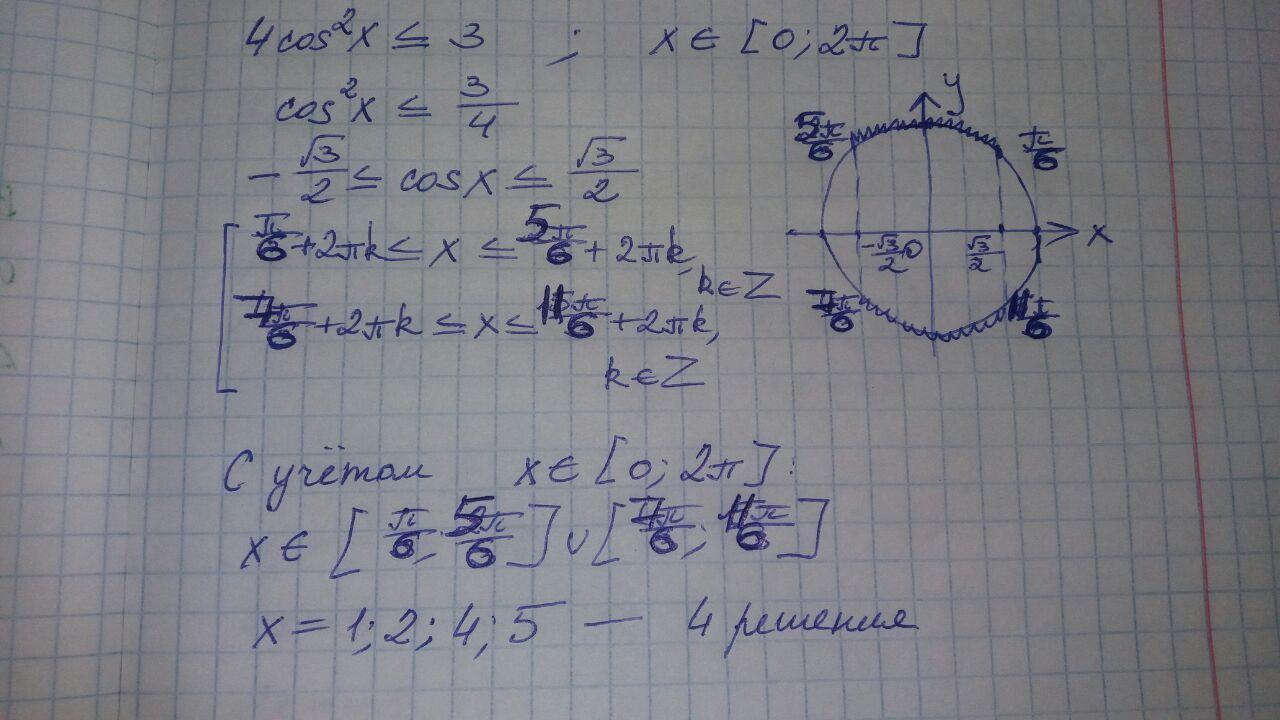 4cos²x ≤ 3 ; x ∈ [0; 2π]
cos²x ≤ 3/4
-√3/2 ≤ cosx ≤ √3/2
π/6 + 2πk ≤ x ≤ 5π/6 + 2πk, k ∈ Z
7π/6 + 2πk ≤ x ≤ 11π/6 + 2πk,
k ∈ Z
y
5π/6 π/6
-√3/2 0 √3/2 x
7π/6 11π/6
С учётом x ∈ [0; 2π]:
x ∈ [π/6; 5π/6] ∪ [7π/6; 11π/6]
x = 1; 2; 4; 5 — 4 решения